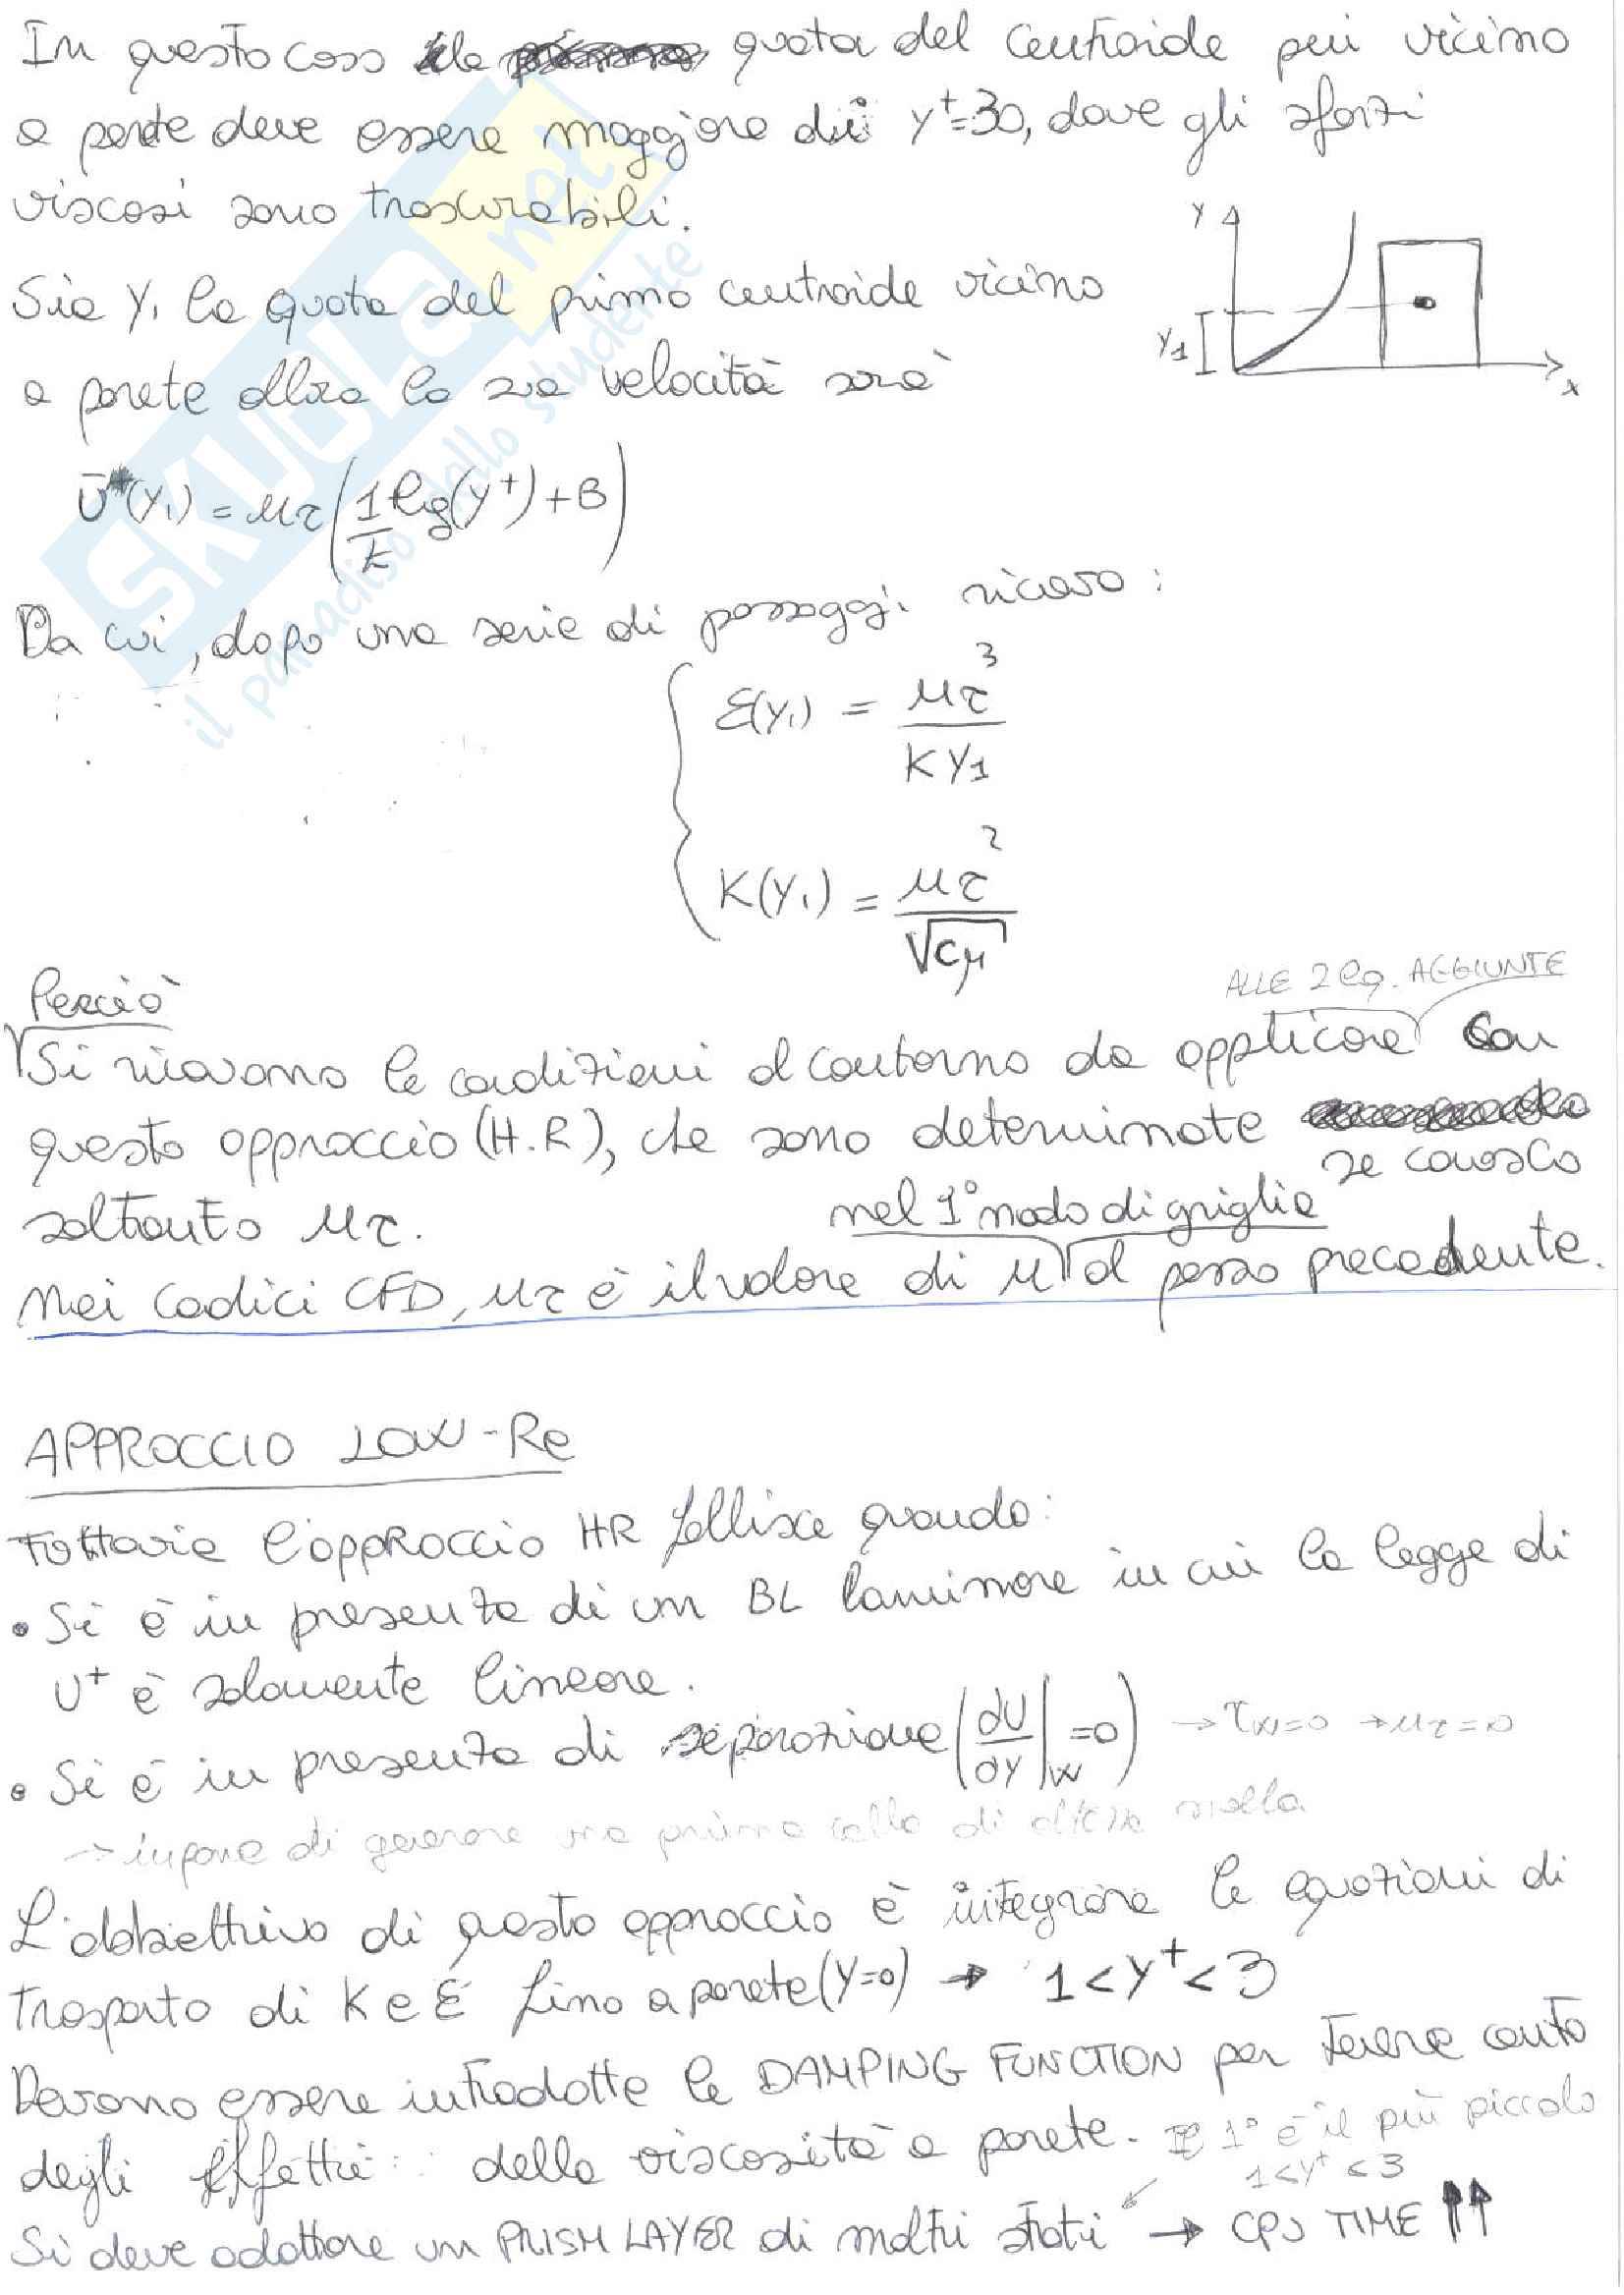 In questo caso la quota del centroide più vicino
a parete deve essere maggiore di y⁺=30, dove gli sforzi
viscosi sono trascurabili.
Sia y₁ la quota del primo centroide vicino
a parete allora la sua velocità sarà
y
y₁
x
Ū(y₁) = uτ(1/k log(y⁺)+B)
Da cui, dopo una serie di passaggi ricavo:
ε(y₁) = uτ³/(K y₁)
K(y₁) = uτ²/√Cμ
Perciò
ALLE 2 eq. AGGIUNTE
Si ricavano le condizioni al contorno da applicare con
questo approccio (H.R), che sono determinate
se conosco
soltanto uτ.
nel 1° nodo di griglia
Nei codici CFD, uτ è il valore di u al passo precedente.
APPROCCIO LOW-Re
Tuttavia l'appRoccio HR fallisce quando:
• Si è in presenza di un BL laminare in cui la legge di
U⁺ è solamente lineare.
• Si è in presenza di separazione (∂U/∂y|w =0) → τw=0 → uτ=0
→ impone di generare una prima cella di altezza molla
L'obbiettivo di questo approccio è integrare le equazioni di
trasporto di K e ε fino a parete (y=0) → 1<y⁺<3
Devono essere introdotte le DAMPING FUNCTION per tenere conto
degli effetti della viscosità a parete. Il 1° è il più piccolo
1<y⁺<3
Si deve adottare un PRISM LAYER di molti strati → CPU TIME ⬆⬆
SKUOLA.net
il paradiso dello studente